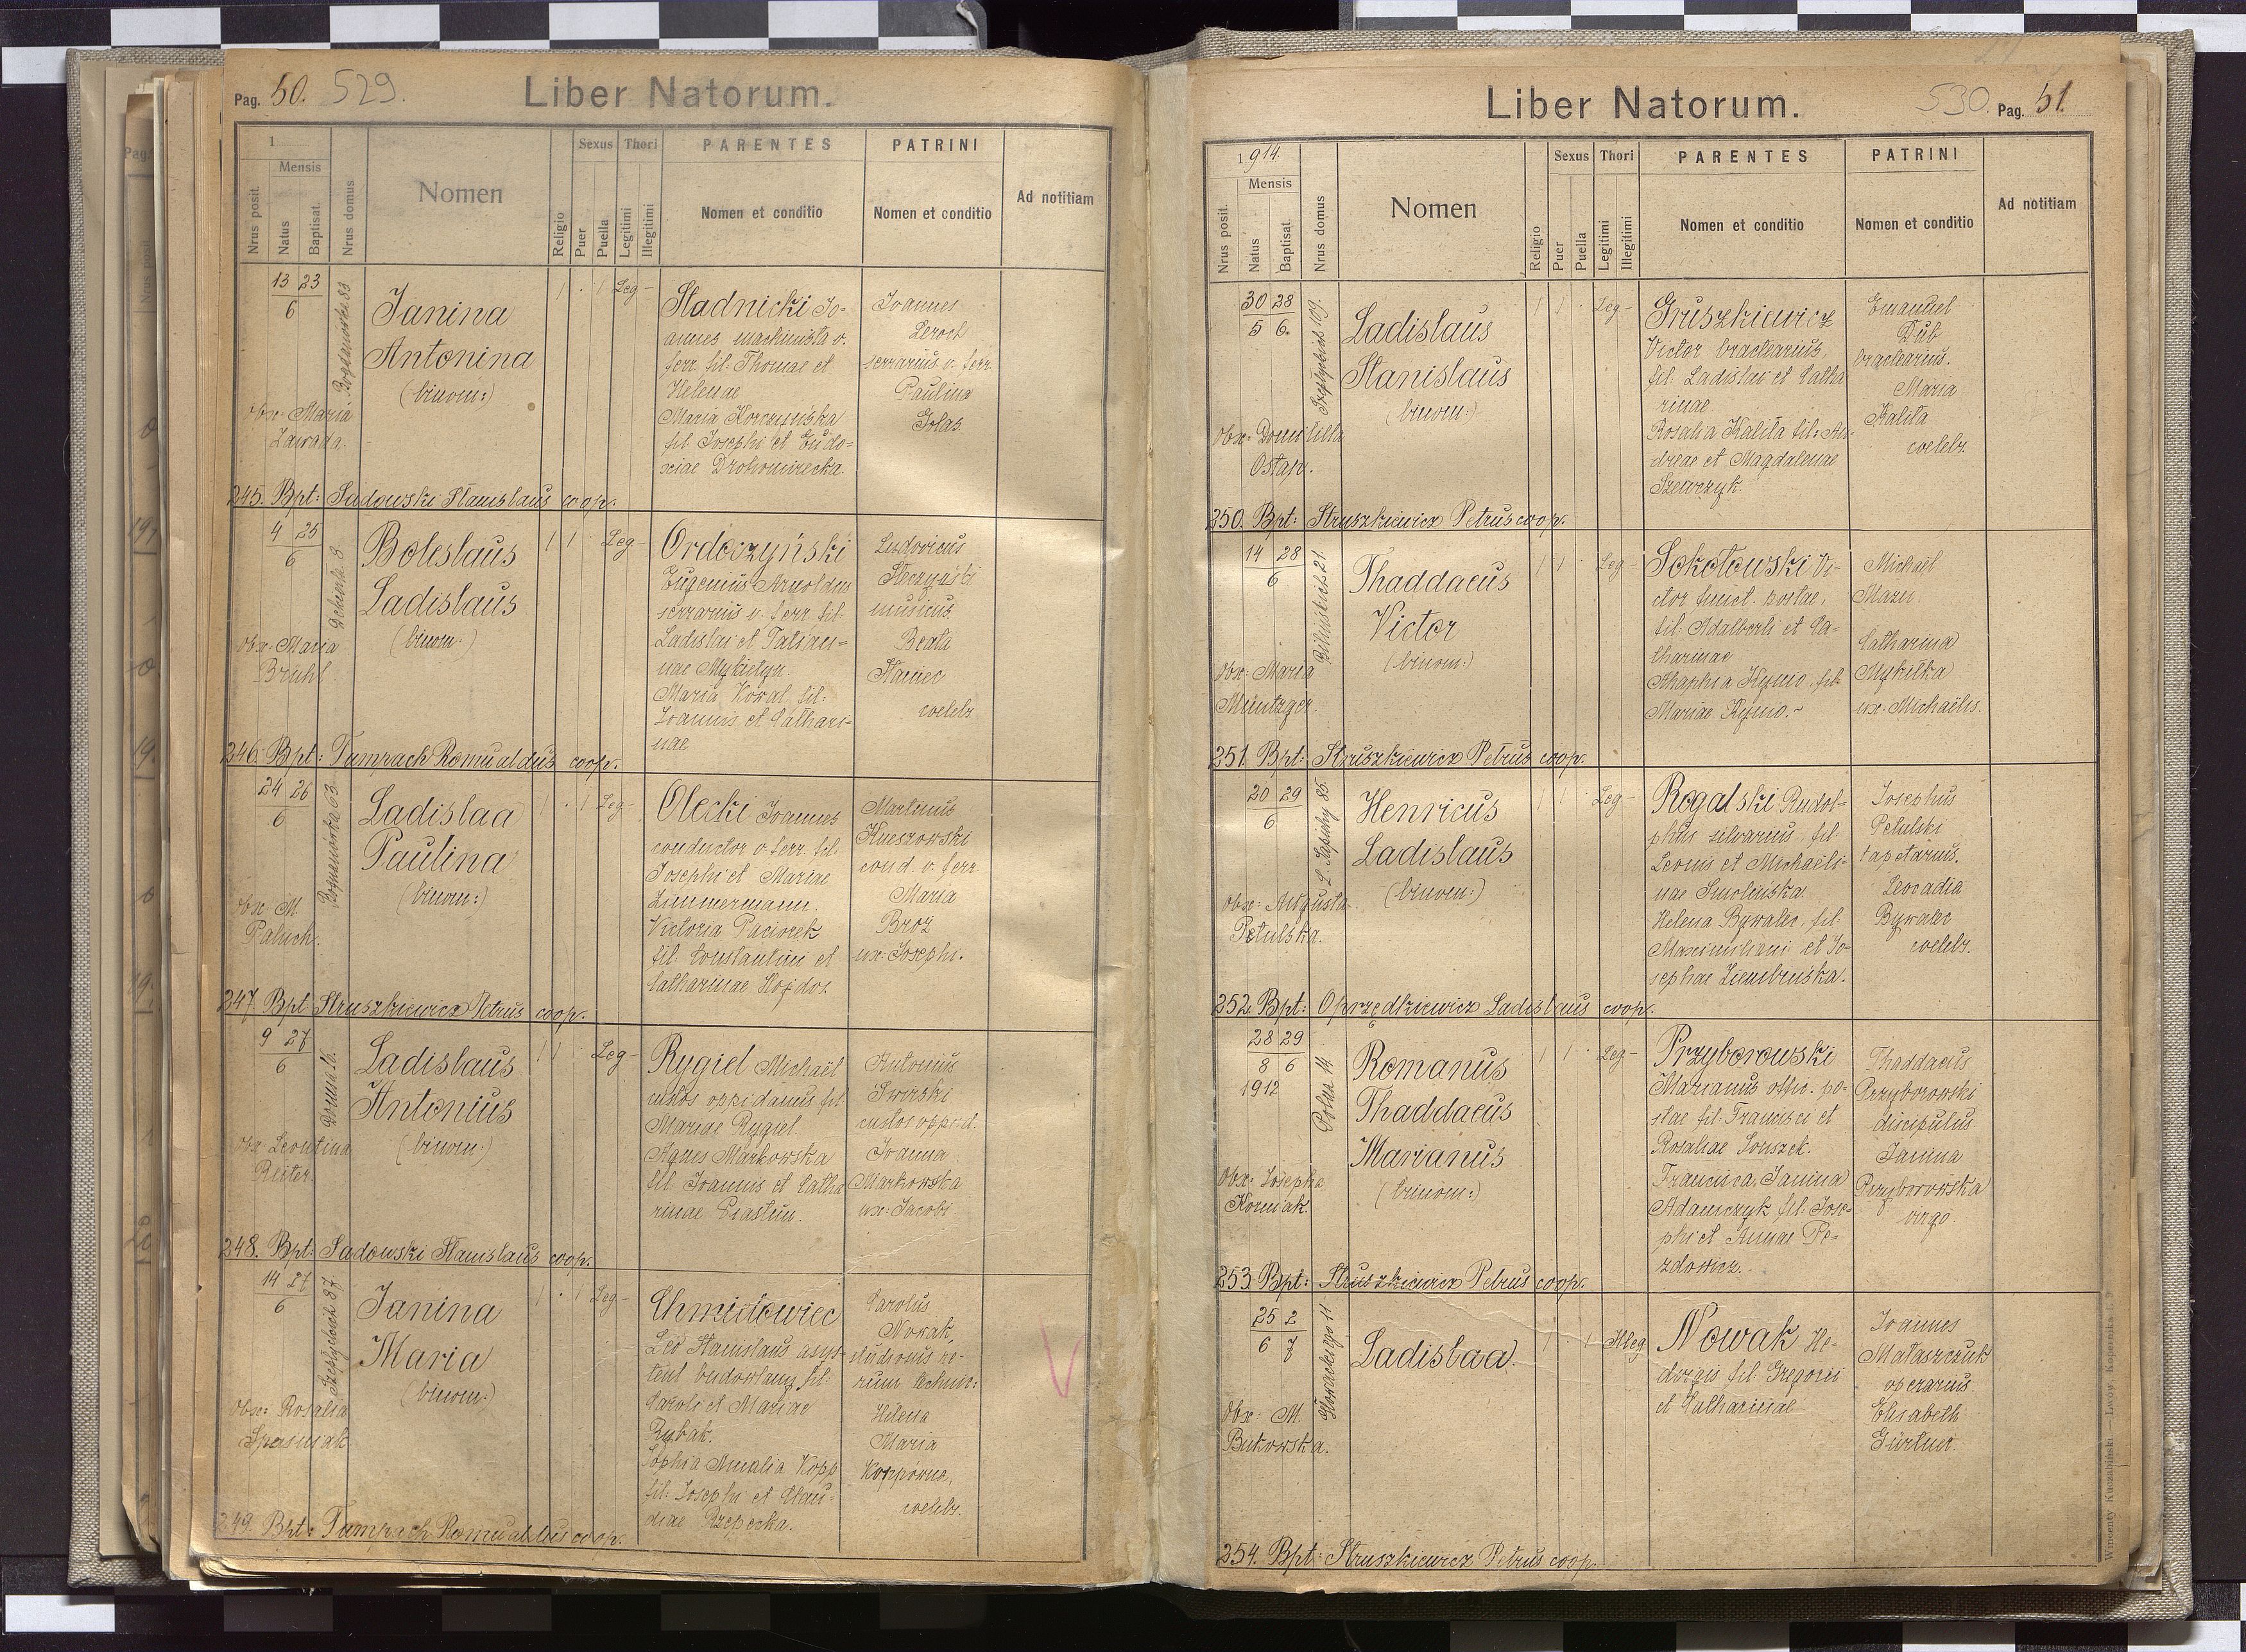 Pag. 50. 529.
Liber Natorum.
1
Mensis
Nrus posit.
Natus
Baptisat.
Nrus domus
Nomen
Religio
Sexus
Puer
Puella
Thori
Legitimi
Illegitimi
PARENTES
Nomen et conditio
PATRINI
Nomen et conditio
Ad notitiam
13 23
6
Bogdanówka 83
Janina
Antonina
(binom:)
Obx: Maria
Zawada.
1 . 1 Leg-
Stadnicki Jo-
annes machinista v.
ferr. fil. Thomae et
Helenae
Maria Korczyńska
fil. Josephi et Eudo=
xiae Drohomirecka.
Joannes
Leroch
serrarius v. ferr.
Paulina
Golas.
245. Bpt: Sadowski Stanislaus coop.
4 25
6
Boleslaus
Ladislaus
(binom:)
Obx: Maria
Brühl
1 1 . Leg-
Ordoczyński
Eugenius Arnoldus
serrarius v. ferr. fil.
Ladislai et Tatian=
nae Mykietyn.
Maria Kowal fil:
Joannis et Cathari-
nae
Ludovicus
musicus.
Beata
coelebs
246. Bpt: Tumpach Romualdus coop.
24 26
6
Bogdanówka 63.
Ladislaa
Paulina
(binom:)
Obx: M.
Paluch.
1 . 1 Leg-
Olecki Joannes
conductor v. ferr. fil.
Josephi et Mariae
Zimmermann.
Victoria Paciorek
fil: Constantini et
Catharinae Hojdos.
Martinus
Kueszowski
cond. v. ferr
Maria
Broż
ux: Josephi.
247. Bpt Struszkiewicz Petrus coop.
9 27
6
Ladislaus
Antonius
(binom:)
Obx: Leontina
Reiter.
1 1 . Leg-
Rygiel Michaël
custos oppidanus fil.
Mariae Rygiel.
Agnes Markowska
fil. Joannis et Catha
rinae
Antonius
Swirski
custos oppid.
Joanna
Markowska
ux: Jacobi
248. Bpt: Sadowski Stanislaus coop.
14 27
6
Szeptyckich 37
Janina
Maria
(binom:)
Obx: Rosalia
Spasniak
1 . 1 Leg-
Chmielowiec
Leo Stanislaus asys-
tent budowlany fil:
Caroli et Mariae
Rybak.
Sophia Amalia Kopp
fil: Josephi et Clau=
diae Rzepecka.
Carolus
Nowak,
studiosus re-
rum technic:
Helena
Maria
Koppówna,
coelebs.
249. Bpt: Tumpach Romualdus coop.
530. Pag. 51.
Liber Natorum.
1914.
Mensis
Nrus posit.
Natus
Baptisat.
Nrus domus
Nomen
Religio
Sexus
Puer
Puella
Thori
Legitimi
Illegitimi
PARENTES
Nomen et conditio
PATRINI
Nomen et conditio
Ad notitiam
30 28
5 6.
Szeptyckich 109.
Ladislaus
Stanislaus
(binom:)
Obx: Domitilla
Ostap.
1 1 . Leg-
Gruszkiewicz
Victor bractearius,
fil. Ladislai et Catha
rinae
Rosalia Kalita fil: An-
dreae et Magdalenae
Szewczyk.
Emanuel
Dub
bractearius.
Maria
Kalita
coelebs.
250. Bpt: Struszkiewicz Petrus coop.
14 28
6
Thaddaeus
Victor
(binom:)
Obx: Maria
Müntzger.
1 1 . Leg-
Sokołowski Vi-
ctor funct. postae,
fil. Adalberti et Ca-
tharinae
Mariae
Michaël
Mazu
Catharina
Mykitka
ux: Michaëlis.
251. Bpt: Struszkiewicz Petrus coop.
20 29
6
L. Sapiehy 85.
Henricus
Ladislaus
(binom:)
Obx: Augusta
Petulska.
1 1 . Leg-
Rogalski Rudol-
phus silvarius, fil.
Leonis et Michaëli-
nae Smoleńska.
Helena Bywalec, fil:
Maximiliani et Jo-
sephae Ziembinska.
Josephus
Petulski
tapetarius.
Leocadia
Bywalec
coelebs.
252. Bpt: Oprzędkiewicz Ladislaus coop.
28 29
8 6
1912
Polna 14
Romanus
Thaddaeus
Marianus
(trinom:)
Obx: Josepha
Korniak.
1 1 . Leg-
Przyborowski
Marianus offic. po-
stae fil. Francisci et
Rosaliae Souszek.
Francisca, Janina
Adamczyk fil. Jose-
phi et Annae Pe=
zdowicz.
Thaddaeus
Przyborowski
discipulus.
Janina
Przyborowska
virgo
253. Bpt: Struszkiewicz Petrus coop.
25 2
6 7
Słowackiego 11
Ladislaa.
Obx: M.
Bukowska.
1 . 1 Illeg.
Nowak He-
dvigis fil. Gregorii
et Catharinae
Joannes
Mataszczuk
operarius.
Elisabeth
Gürtner
254. Bpt: Struszkiewicz Petrus coop.
Wincenty Kuczabiński — Lwów, Kopernika l. 9